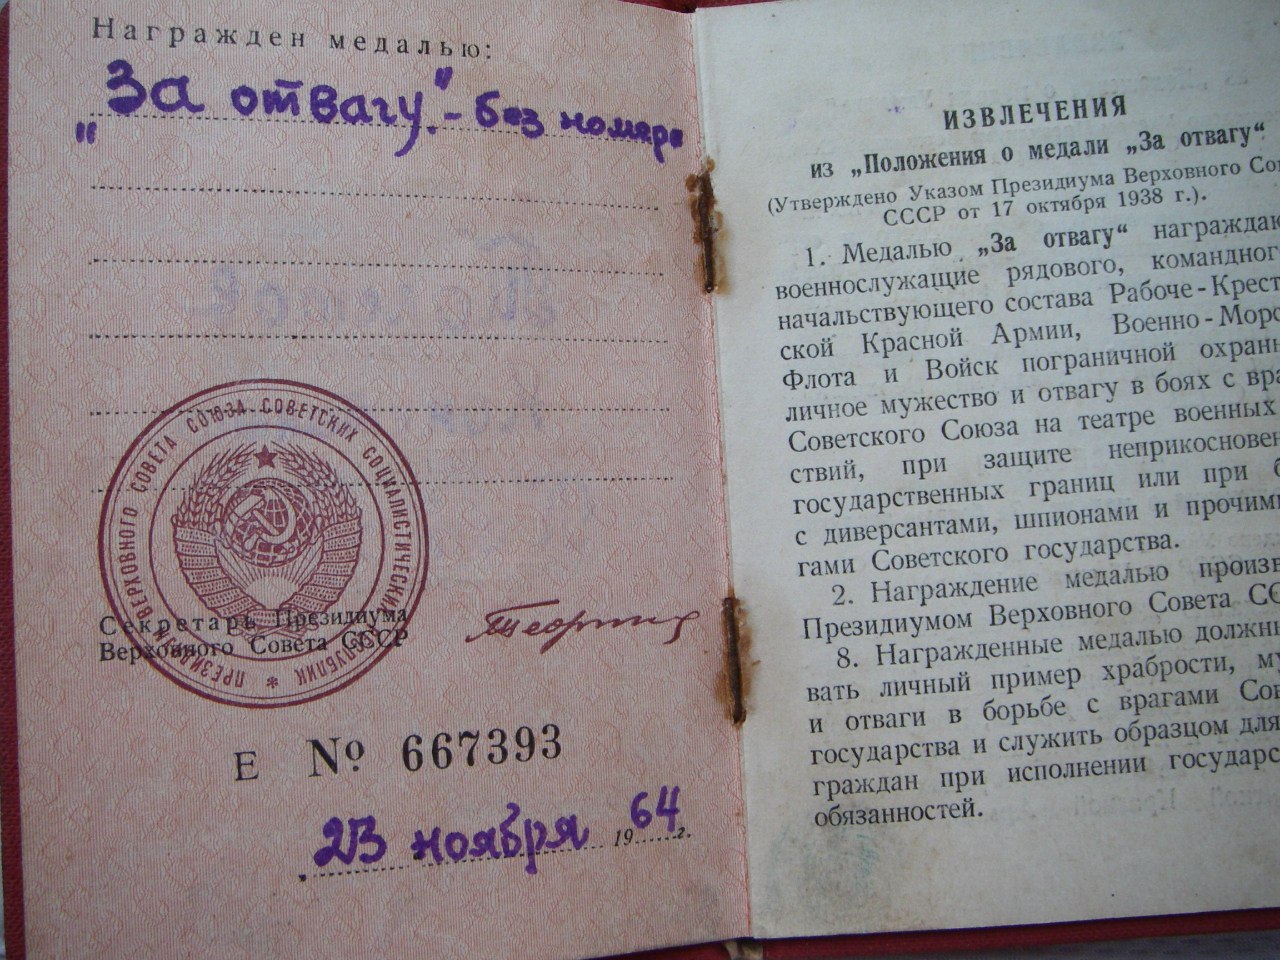 Награжден медалью:
„За отвагу."- без номера
ПРЕЗИДИУМ ВЕРХОВНОГО СОВЕТА СОЮЗА СОВЕТСКИХ СОЦИАЛИСТИЧЕСКИХ РЕСПУБЛИК *
Секретарь Президиума
Верховного Совета СССР
Е № 667393
23 ноября 1964 г.
ИЗВЛЕЧЕНИЯ
из „Положения о медали „За отвагу“
(Утверждено Указом Президиума Верховного Сов
СССР от 17 октября 1938 г.).
1. Медалью „За отвагу“ награждаю
военнослужащие рядового, командног
начальствующего состава Рабоче-Крест
ской Красной Армии, Военно-Морс
Флота и Войск пограничной охран
личное мужество и отвагу в боях с вра
Советского Союза на театре военных
ствий, при защите неприкосновен
государственных границ или при б
с диверсантами, шпионами и прочими
гами Советского государства.
2. Награждение медалью произв
Президиумом Верховного Совета СС
8. Награжденные медалью должны
вать личный пример храбрости, му
и отваги в борьбе с врагами Сов
государства и служить образцом для
граждан при исполнении государс
обязанностей.